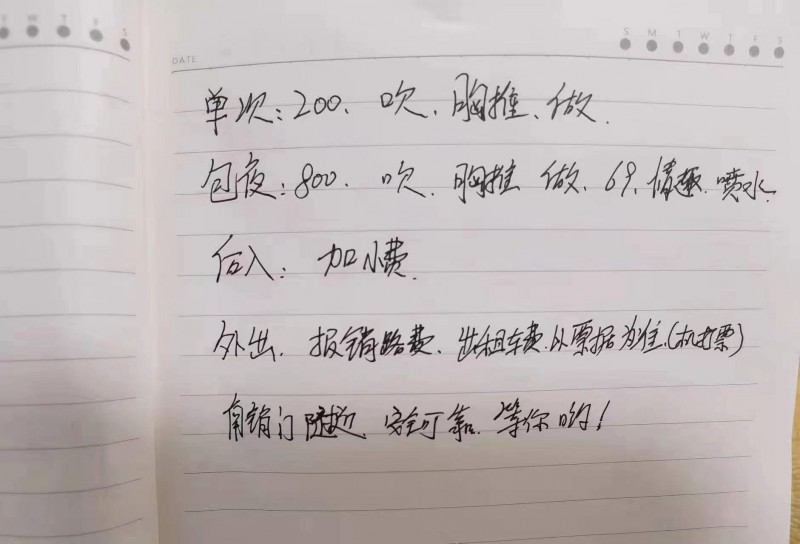 S M T W T F S
DATE
单次:200、吹、胸推、做.
包夜:800、吹、胸推 做、69、情趣、喷水.
后入:加小费.
外出、报销路费、出租车费以票据为准.(机打票)
安全可靠、等你哟!